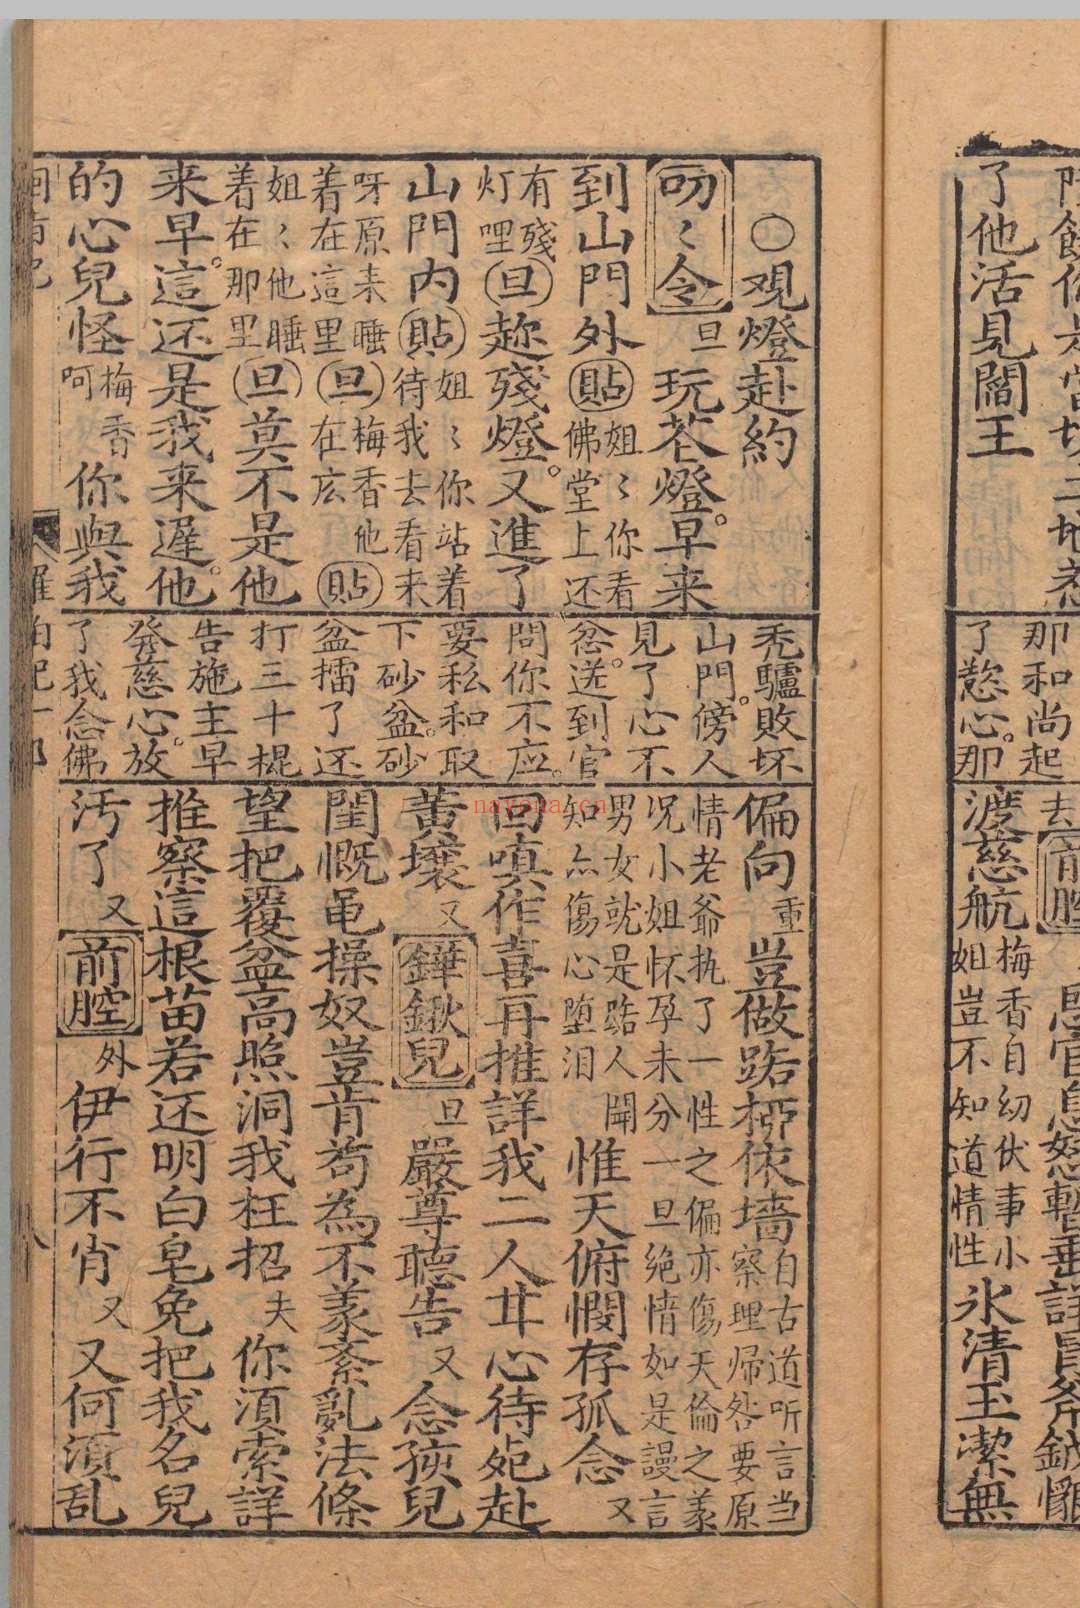 了他活見閻王
那和尚起
了慾心那
去 前腔 恩官息怒暫垂詳冒斧鉞
渡慈航 梅香自幼伏事小姐豈不知道情性 氷清玉潔無
○观燈赴約
叨〻令 旦 玩花燈早来
到山門外 貼 姐〻你看佛堂上还
有殘灯哩 旦 趂殘燈又進了
山門内 貼 姐〻你站着待我去看来
呀原来睡着在這里 旦 梅香他在庅 貼
姐〻他睡着在那里 旦 莫不是他
来早這还是我来遲他
的心兒怪 梅香呵 你與我
禿驢敗坏
山門傍人
見了心不
忿送到官
問你不应
要私和取
下砂盆砂
盆擂了还
打三十棍
告施主早
發慈心放
了我念佛
偏向 重 豈做踮柳依墻 自古道听言当察理歸咎要原
情老爺执了一性之偏亦傷天倫之義况小姐怀孕未分一旦绝情如是謾言
男女就是踮人聞知亦傷心堕泪 惟天俯憫存孤念 又
回嗔作喜再推詳我二人甘心待死赴
黄壤 又 鏵鍬兒 旦 嚴尊聴告 又 念孩兒
閨慨黽操奴豈肯苟為不義紊亂法條
望把覆盆高照洞我枉招 夫 你須索詳
推察這根苗若还明白皂免把我名兒
汚了 又 前腔 外 伊行不肖 又 又何須乱
nayona.cn